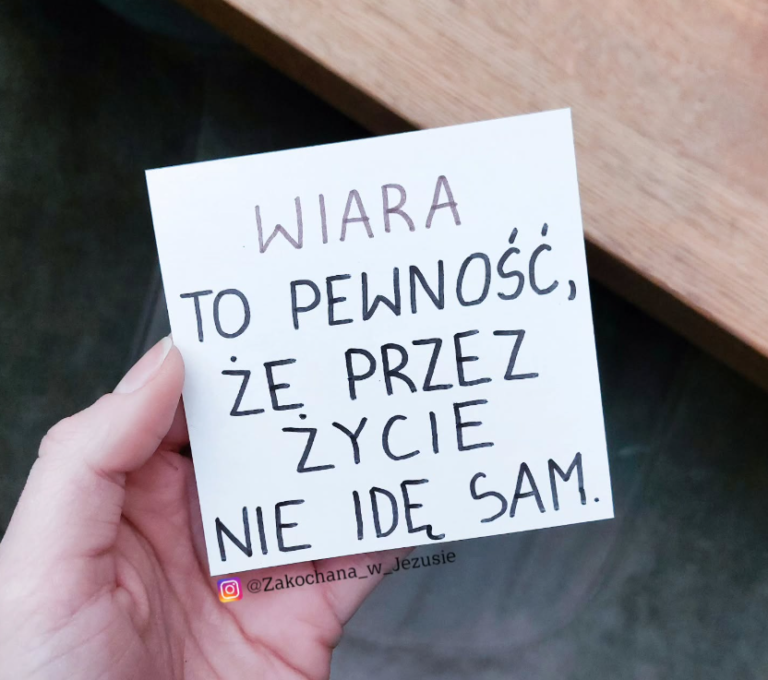 WIARA
TO PEWNOŚĆ,
ŻE PRZEZ
ŻYCIE
NIE IDĘ SAM.
@Zakochana_w_Jezusie